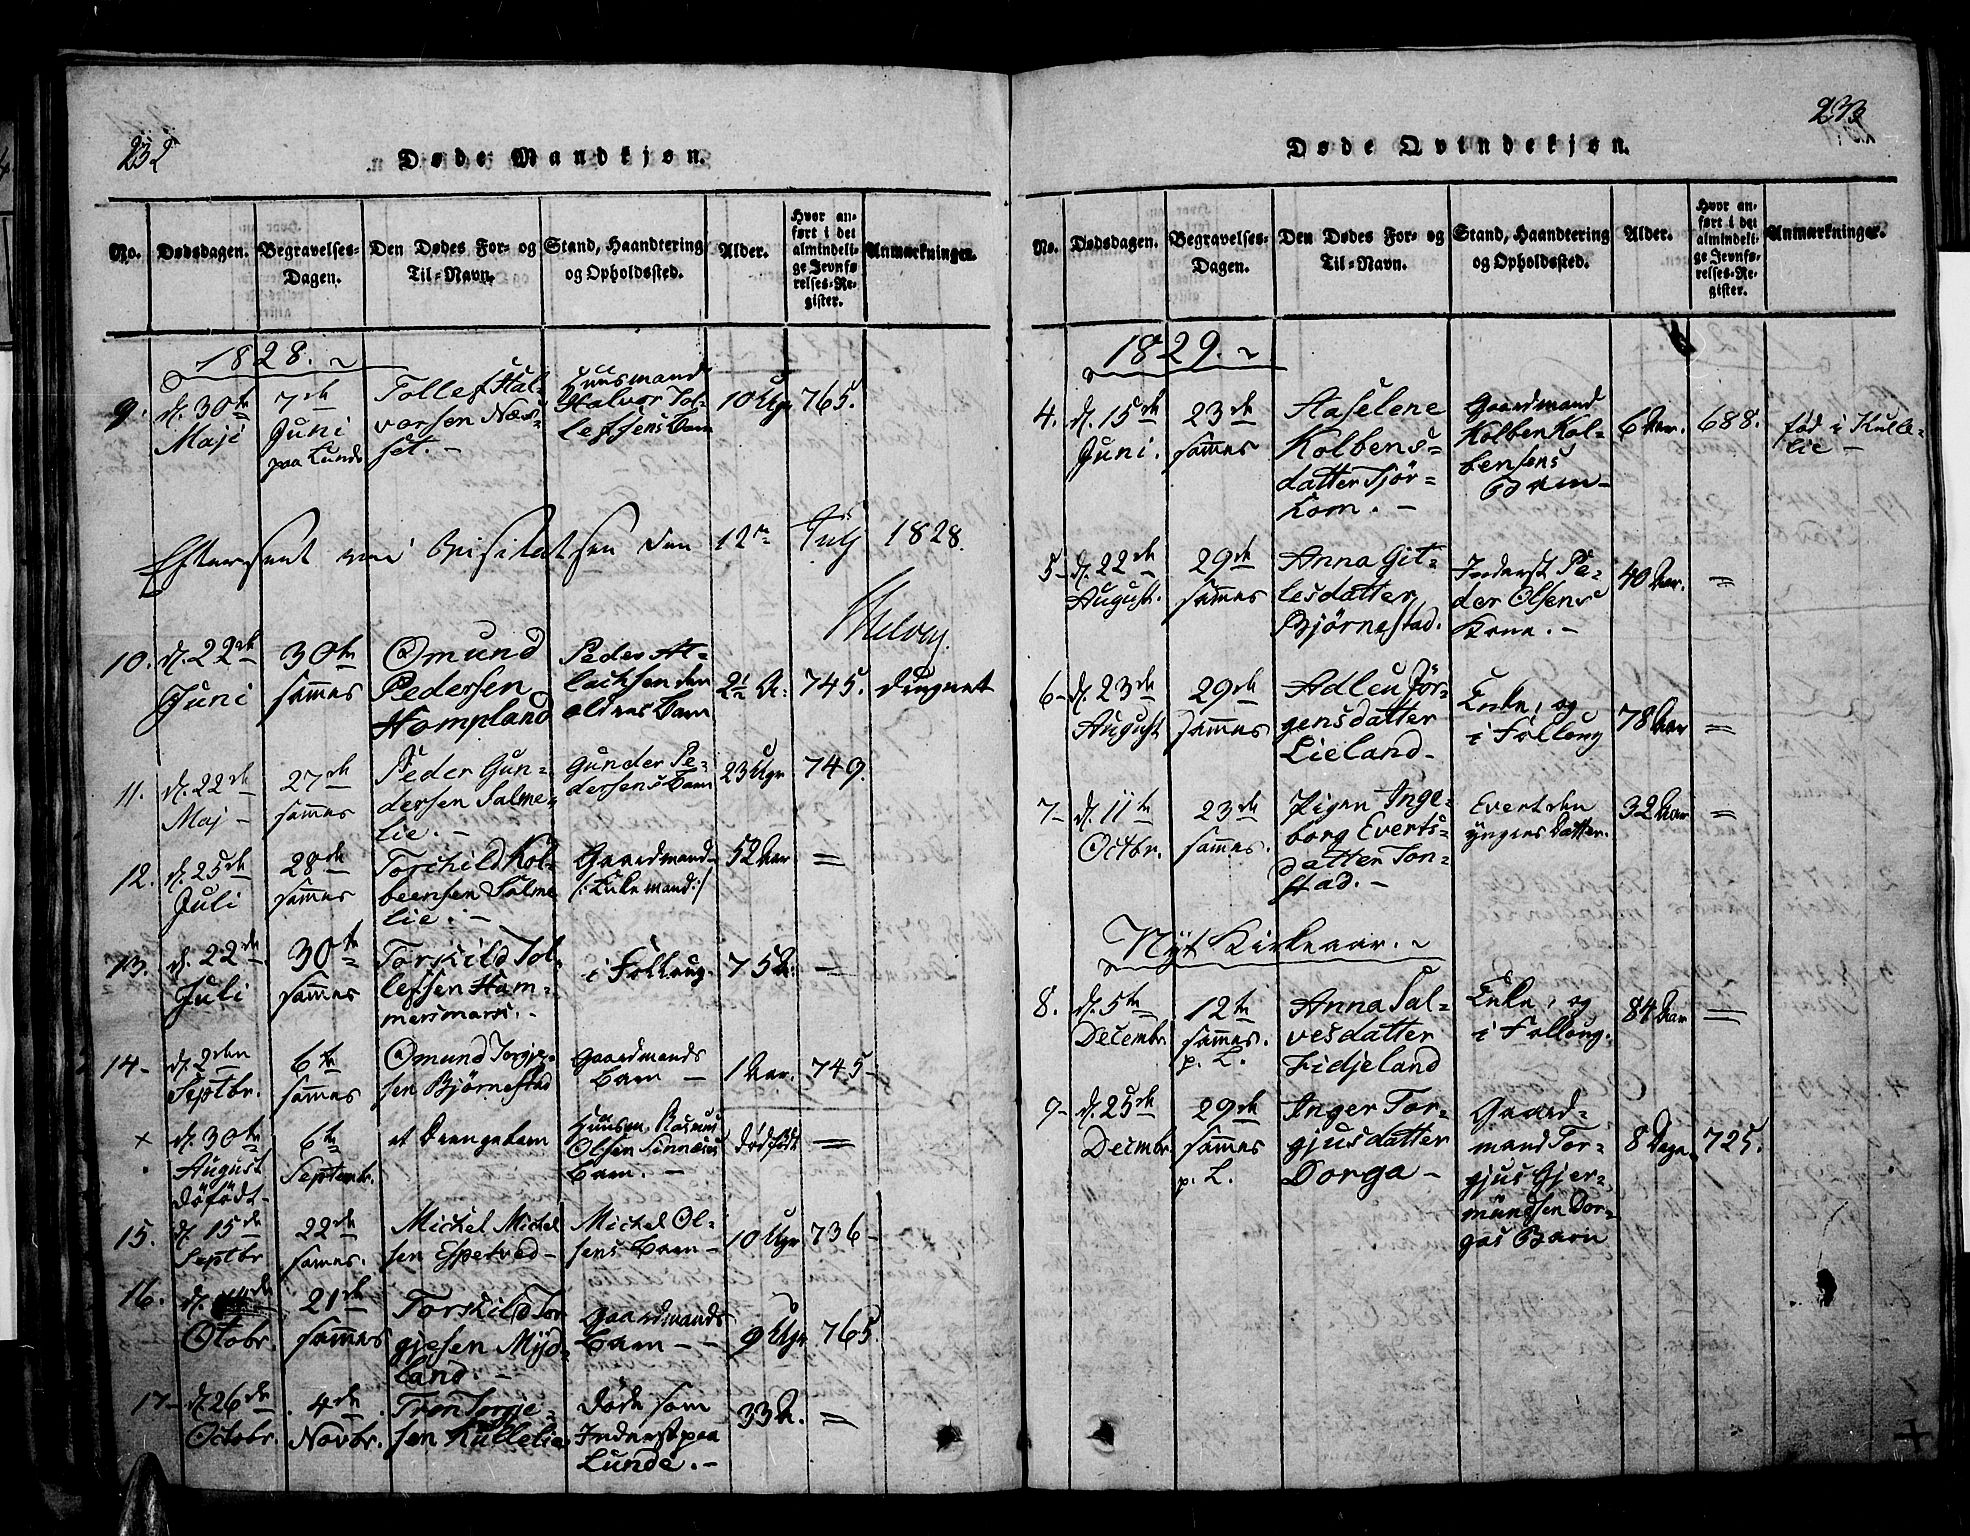 232
Døde Mandkjøn.
No.
Dødsdagen.
Begravelses-
Dagen.
Den Dødes For- og
Til-Navn.
Stand, Haandtering
og Opholdssted.
Alder.
Hvor an-
ført i det
almindeli-
ge Jevnfø-
relses-Re-
gister.
Anmærkninger.
1828.
9.
d. 30te
Maji
7de
Juni
paa Lunde
Tollef Hal-
vorsen Næs-
set. -
Huusmand
Halvor Tol-
lefsens Barn
10 Uger
765.
Efterseet ved Visitatsen den 12te July 1828.
10.
d. 22de
Juni
30te
sammes
Omund
Pedersen
Hompland
Peder At-
lachsen den
ældres Barn
2½ A.
745.
11.
d. 22de
Maj -
27de
sammes
Peder Gun-
dersen Salme-
lie. -
Gunder Pe-
dersens Barn
23 Uger
749.
12.
d. 25de
Juli
28de
sammes
Torchild Kol-
beensen Salme
lie. -
Gaardmand
/: Enkemand :/
52 Aar
=
13.
d. 22de
Juli
30te
sammes
Torkild Tol-
lefsen Ham-
mersmark. -
i Follaug.
75 A.
=
14-
d. 2den
Septbr.
6te
sammes
Omund Torgje-
sen Bjørnestad
Gaardmands
Barn -
1 Aar.
745-
×
d. 30te
August
døfødt-
6te
Septembr.
et Drengebarn
Huusm. Rasmus
Olsen Sinnæses
Barn. -
dødfødt
=
15.
d. 15de
Septbr
22de
sammes.
Michel Michel
sen Espetved-
Michel Ol-
sens Barn-
10 Uger
736-
16.
Otobr.
21de
sammes
Torkild Tor
gjesen Mÿd-
land. -
Gaardmands
Barn - -
9 Uger
765.
17-
d. 26de
Octobr.
4de
Novbr.
Tron Torgje-
sen Kullelie
døde som
Inderst paa
Lunde. -
33 A.
=
233
Døde Qvindekjøn.
No.
Dødsdagen.
Begravelses-
Dagen.
Den Dødes For- og
Til-Navn.
Stand, Haandtering
og Opholdssted.
Alder.
Hvor an-
ført i det
almindeli-
ge Jevnfø-
relses-Re-
gister.
Anmærkninger.
1829.
4.
d. 15de
Juni.
23de
sammes
Aaselene
Kolbens-
datter Tjör-
hom. -
Gaardmand
Kolben Kol-
bensens
Barn-
6 Aar.
688.
fød i Kulle-
lie -
5-
d. 22de
August.
29de
sammes
Anna Git-
lesdatter
Bjørnestad.
Inderst Pe-
der Olsens
Kone. -
40 Aar.
=
6-
d. 23de
August
29de
sammes
Adleu Jör-
gensdatter
Lieland-
Enke, og
i Follaug
78 Aar
=
7-
d. 11te
Octbr.
23de
sammes.
Pigen Inge-
borg Everts-
datter Ton-
stad. -
Evert den
yngers Datter.
32 Aar
=
Nÿt Kirkeaar.
8.
d. 5te
Decembr
12te
sammes.
p. L.
Anna Sal-
vesdatter
Fidjeland
Enke, og
i Follaug.
84 Aar
=
9-
d. 25de
Decmbr
29de
sammes
p. L.
Inger Tor-
gjusdatter
Dorga -
Gaard-
mand Tor-
gjus Gjer-
mundsen Dor-
gas Barn
8 Dage.
725.